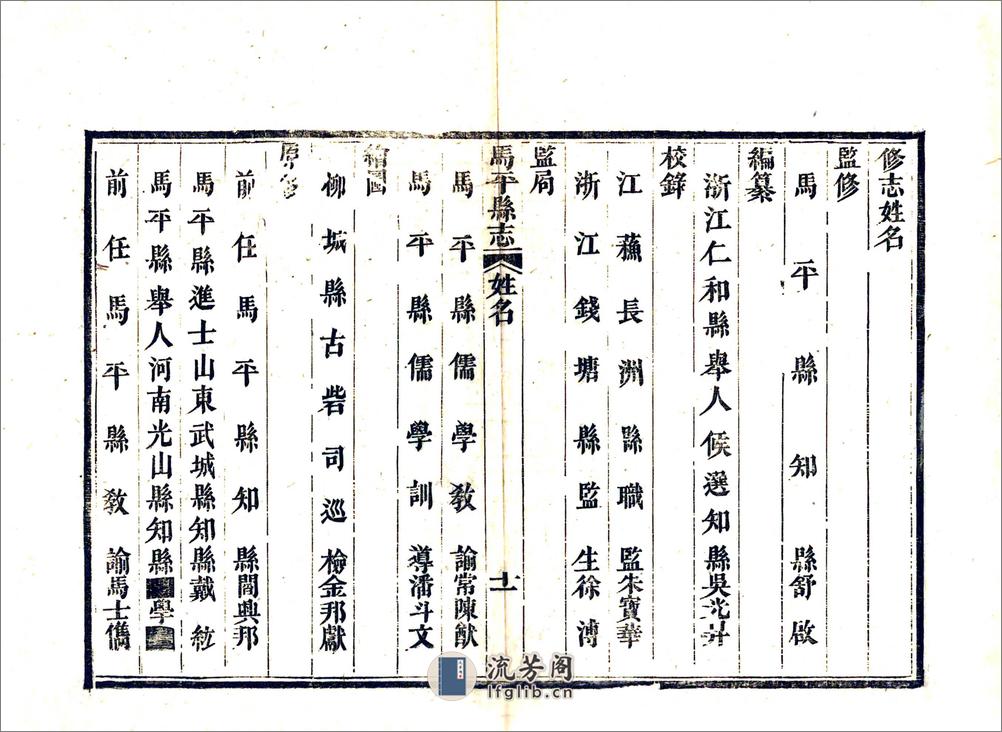 修志姓名
監修
馬平縣知縣舒啟
編纂
浙江仁和縣舉人候選知縣吳光昇
校鋒
江蘓長洲縣職監朱寶華
浙江錢塘縣監生徐溥
監局
馬平縣志 姓名 十一
馬平縣儒學教諭常陳猷
馬平縣儒學訓導潘斗文
繪圖
柳城縣古砦司巡檢金邦獻
原修
前任馬平縣知縣閻興邦
馬平縣進士山東武城縣知縣戴
馬平縣舉人河南光山縣知縣學
前任馬平縣教諭馬士儁
流芳阁
lfglib.cn